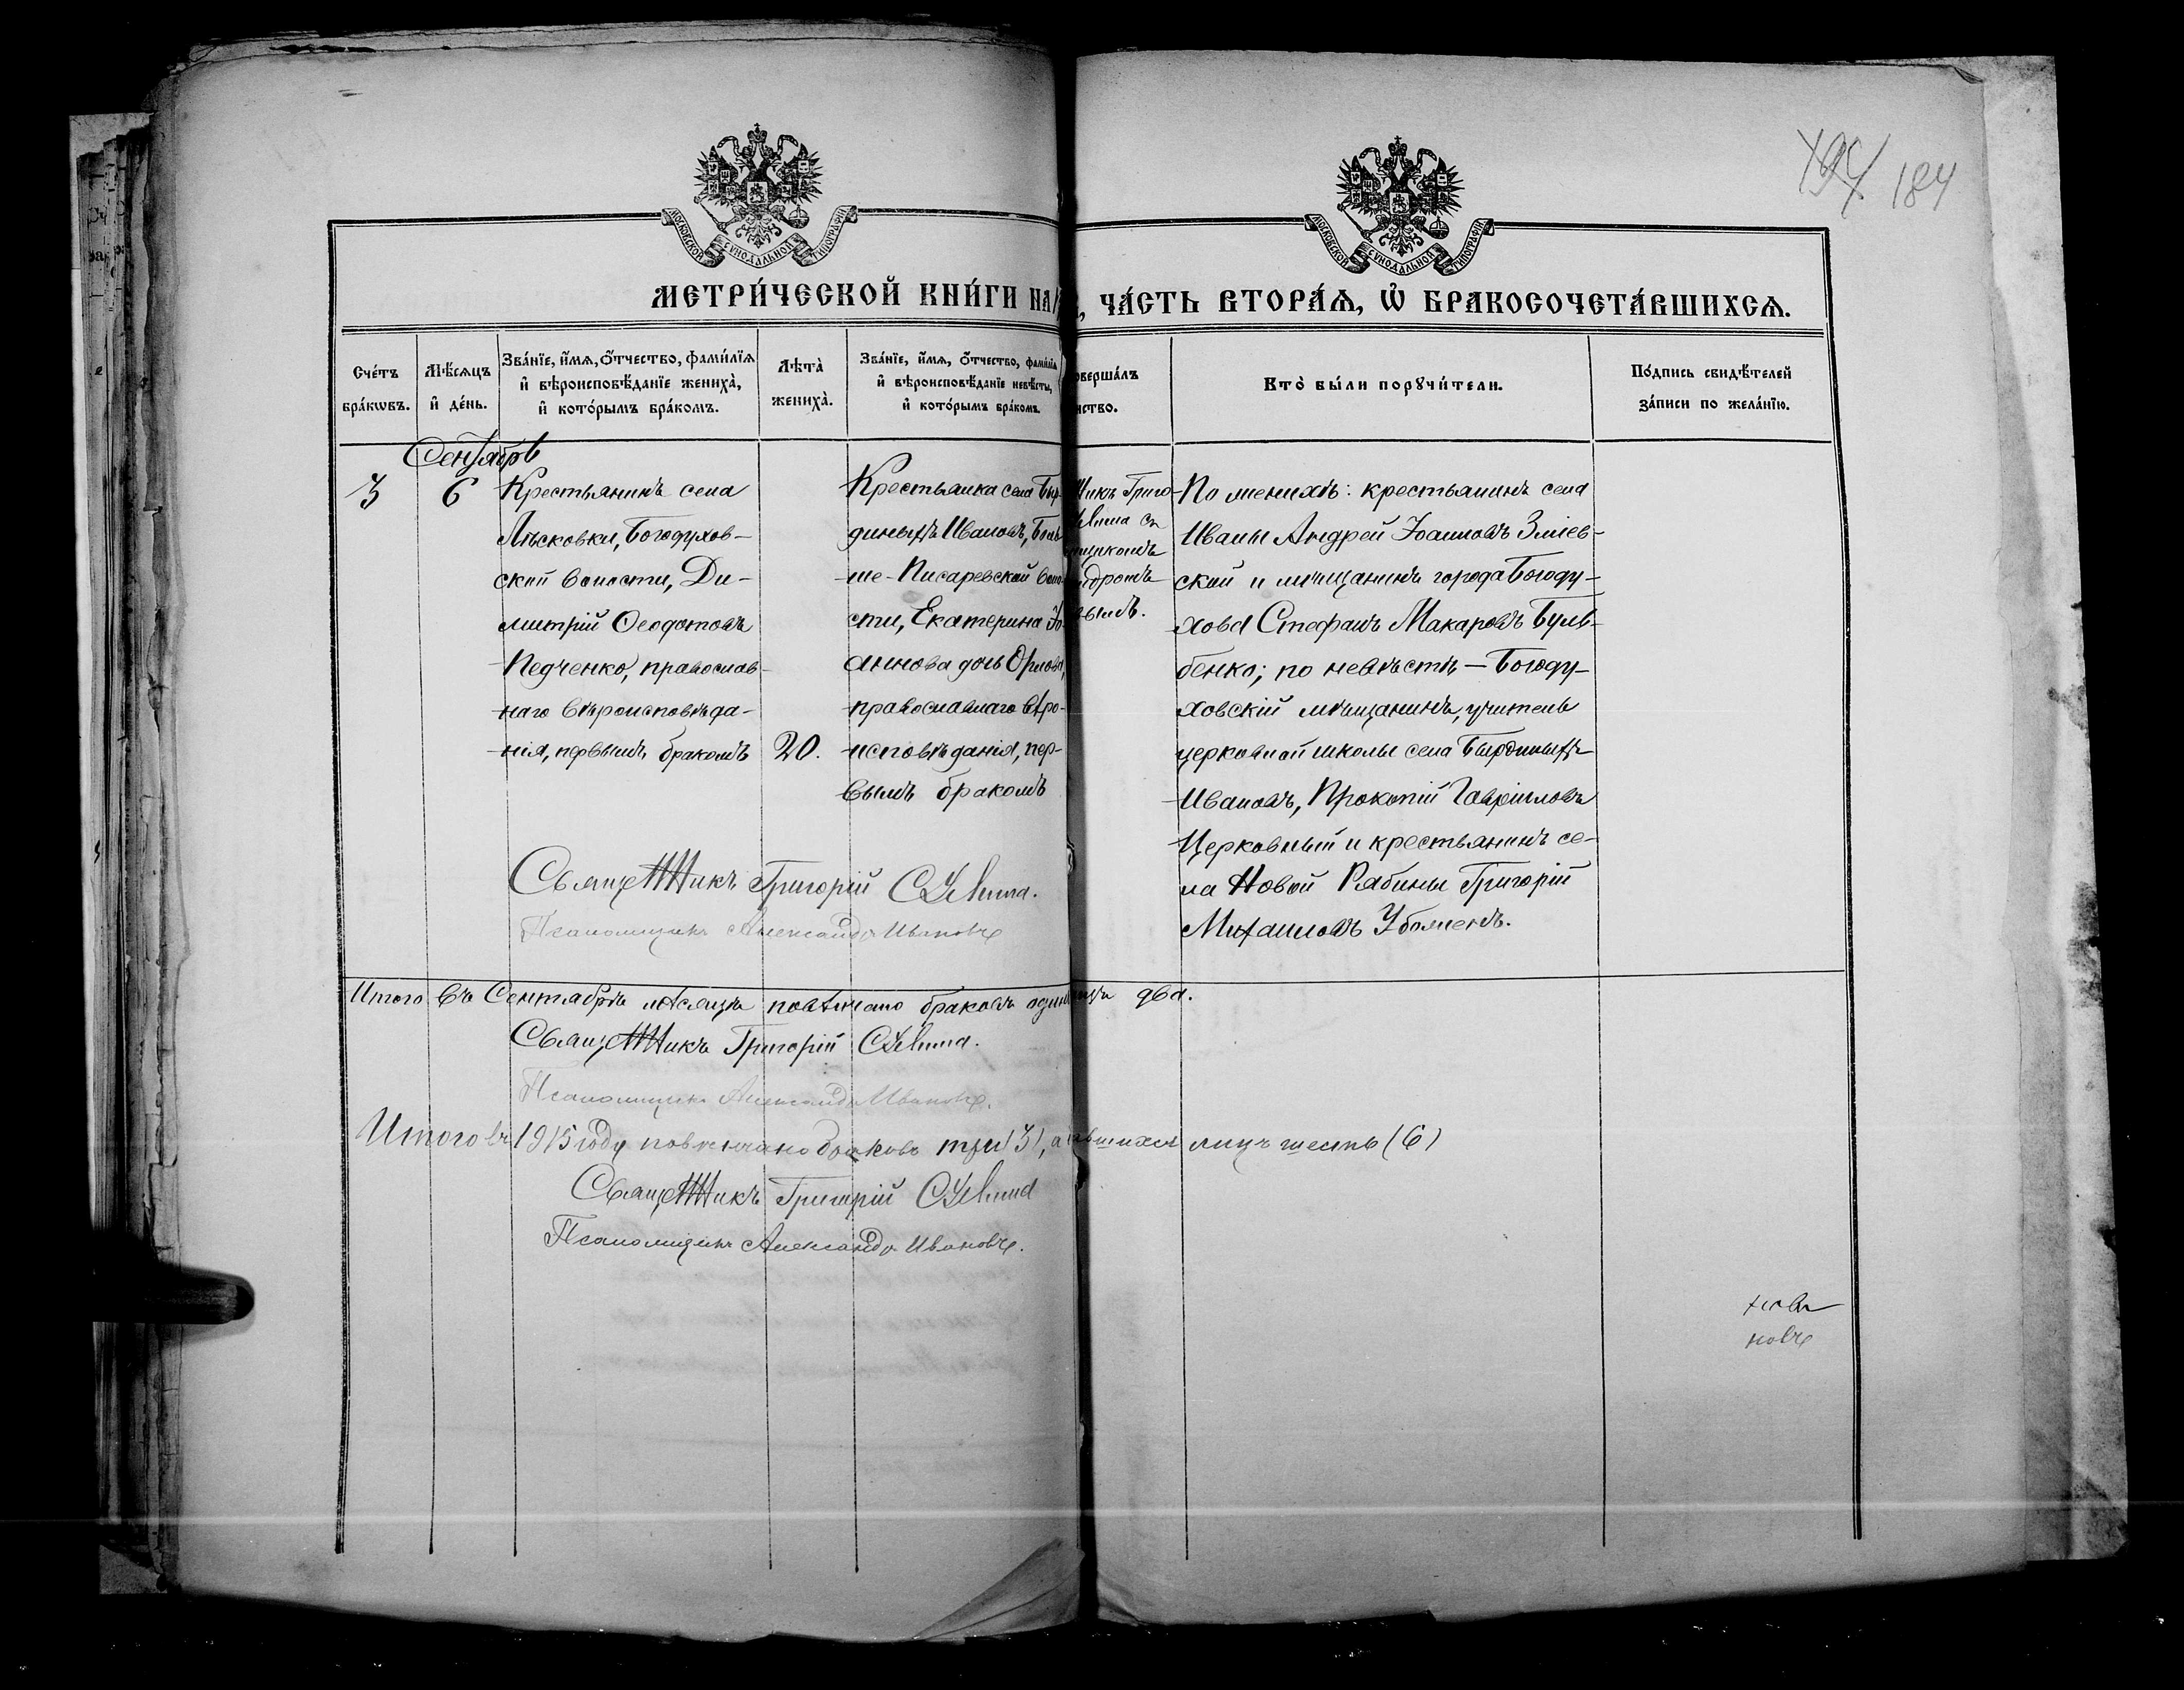 194 184
МОСКОВСКОЙ СУНОДАЛЬНОЙ ТИПОГРАФІИ
МОСКОВСКОЙ СУНОДАЛЬНОЙ ТИПОГРАФІИ
МЕТРИ́ЧЕСКОЙ КНИ́ГИ НА
ЧА́СТЬ ВТОРА́Ѧ, Ѡ҆ БРАКОСОЧЕТА́ВШИХСѦ.
Сче́тъ бра́кѡвъ.
Мѣ́сѧцъ и҆ де́нь.
Зва́нїе, и҆́мѧ, ѻ҆́тчество, фами́лїѧ
и҆ вѣроисповѣ́данїе жениха̀,
и҆ кото́рымъ бра́комъ.
Лѣта̀ жениха̀.
Зва́нїе, и҆́мѧ, ѻ҆́тчество, фами́лїѧ
и҆ вѣроисповѣ́данїе невѣ́сты,
и҆ кото́рымъ бра́комъ.
овершáлъ
нство.
Кто̀ бы́ли порꙋчи́тели.
По́дпись свидѣ́телей
за́писи по жела́нїю.
Сентябрь
3
6
Крестьянинъ села
Лѣсковки, Богодухов-
ской волости, Ди-
митрій Ѳеодотовъ
Педченко, православ-
наго вѣроисповѣда-
нія, первымъ бракомъ
20.
Крестьянка села Быр-
диныхъ Ивановъ, Боль-
ше-Писаревской воло-
сти, Екатерина Іо-
аннова дочь Орлова,
православнаго вѣро-
исповѣданія, пер-
вымъ бракомъ
никъ Григо-
вымъ.
По женихѣ: крестьянинъ села
Иваны Андрей Іоанновъ Зміев-
ской и мѣщанинъ города Богоду-
хова Стефанъ Макаровъ Буль-
бенко; по невѣстѣ — Богоду-
ховскій мѣщанинъ, учитель
церковной школы села Бырдиныхъ
Ивановъ, Прокопій Гавріиловъ
Церковный и крестьянинъ се-
ла Новой Рябины Григорій
Михаиловъ
Священникъ Григорій
Псаломщикъ Александръ Ивановъ
Итого въ Сентябрѣ мѣсяцѣ повѣнчано браковъ один
два.
Священникъ Григорій
Псаломщикъ Александръ Ивановъ.
Итого въ 1915 году повѣнчано браковъ три (3), а
вшихся лицъ шесть (6)
Священникъ Григорій
Псаломщикъ Александръ Ивановъ.
новъ